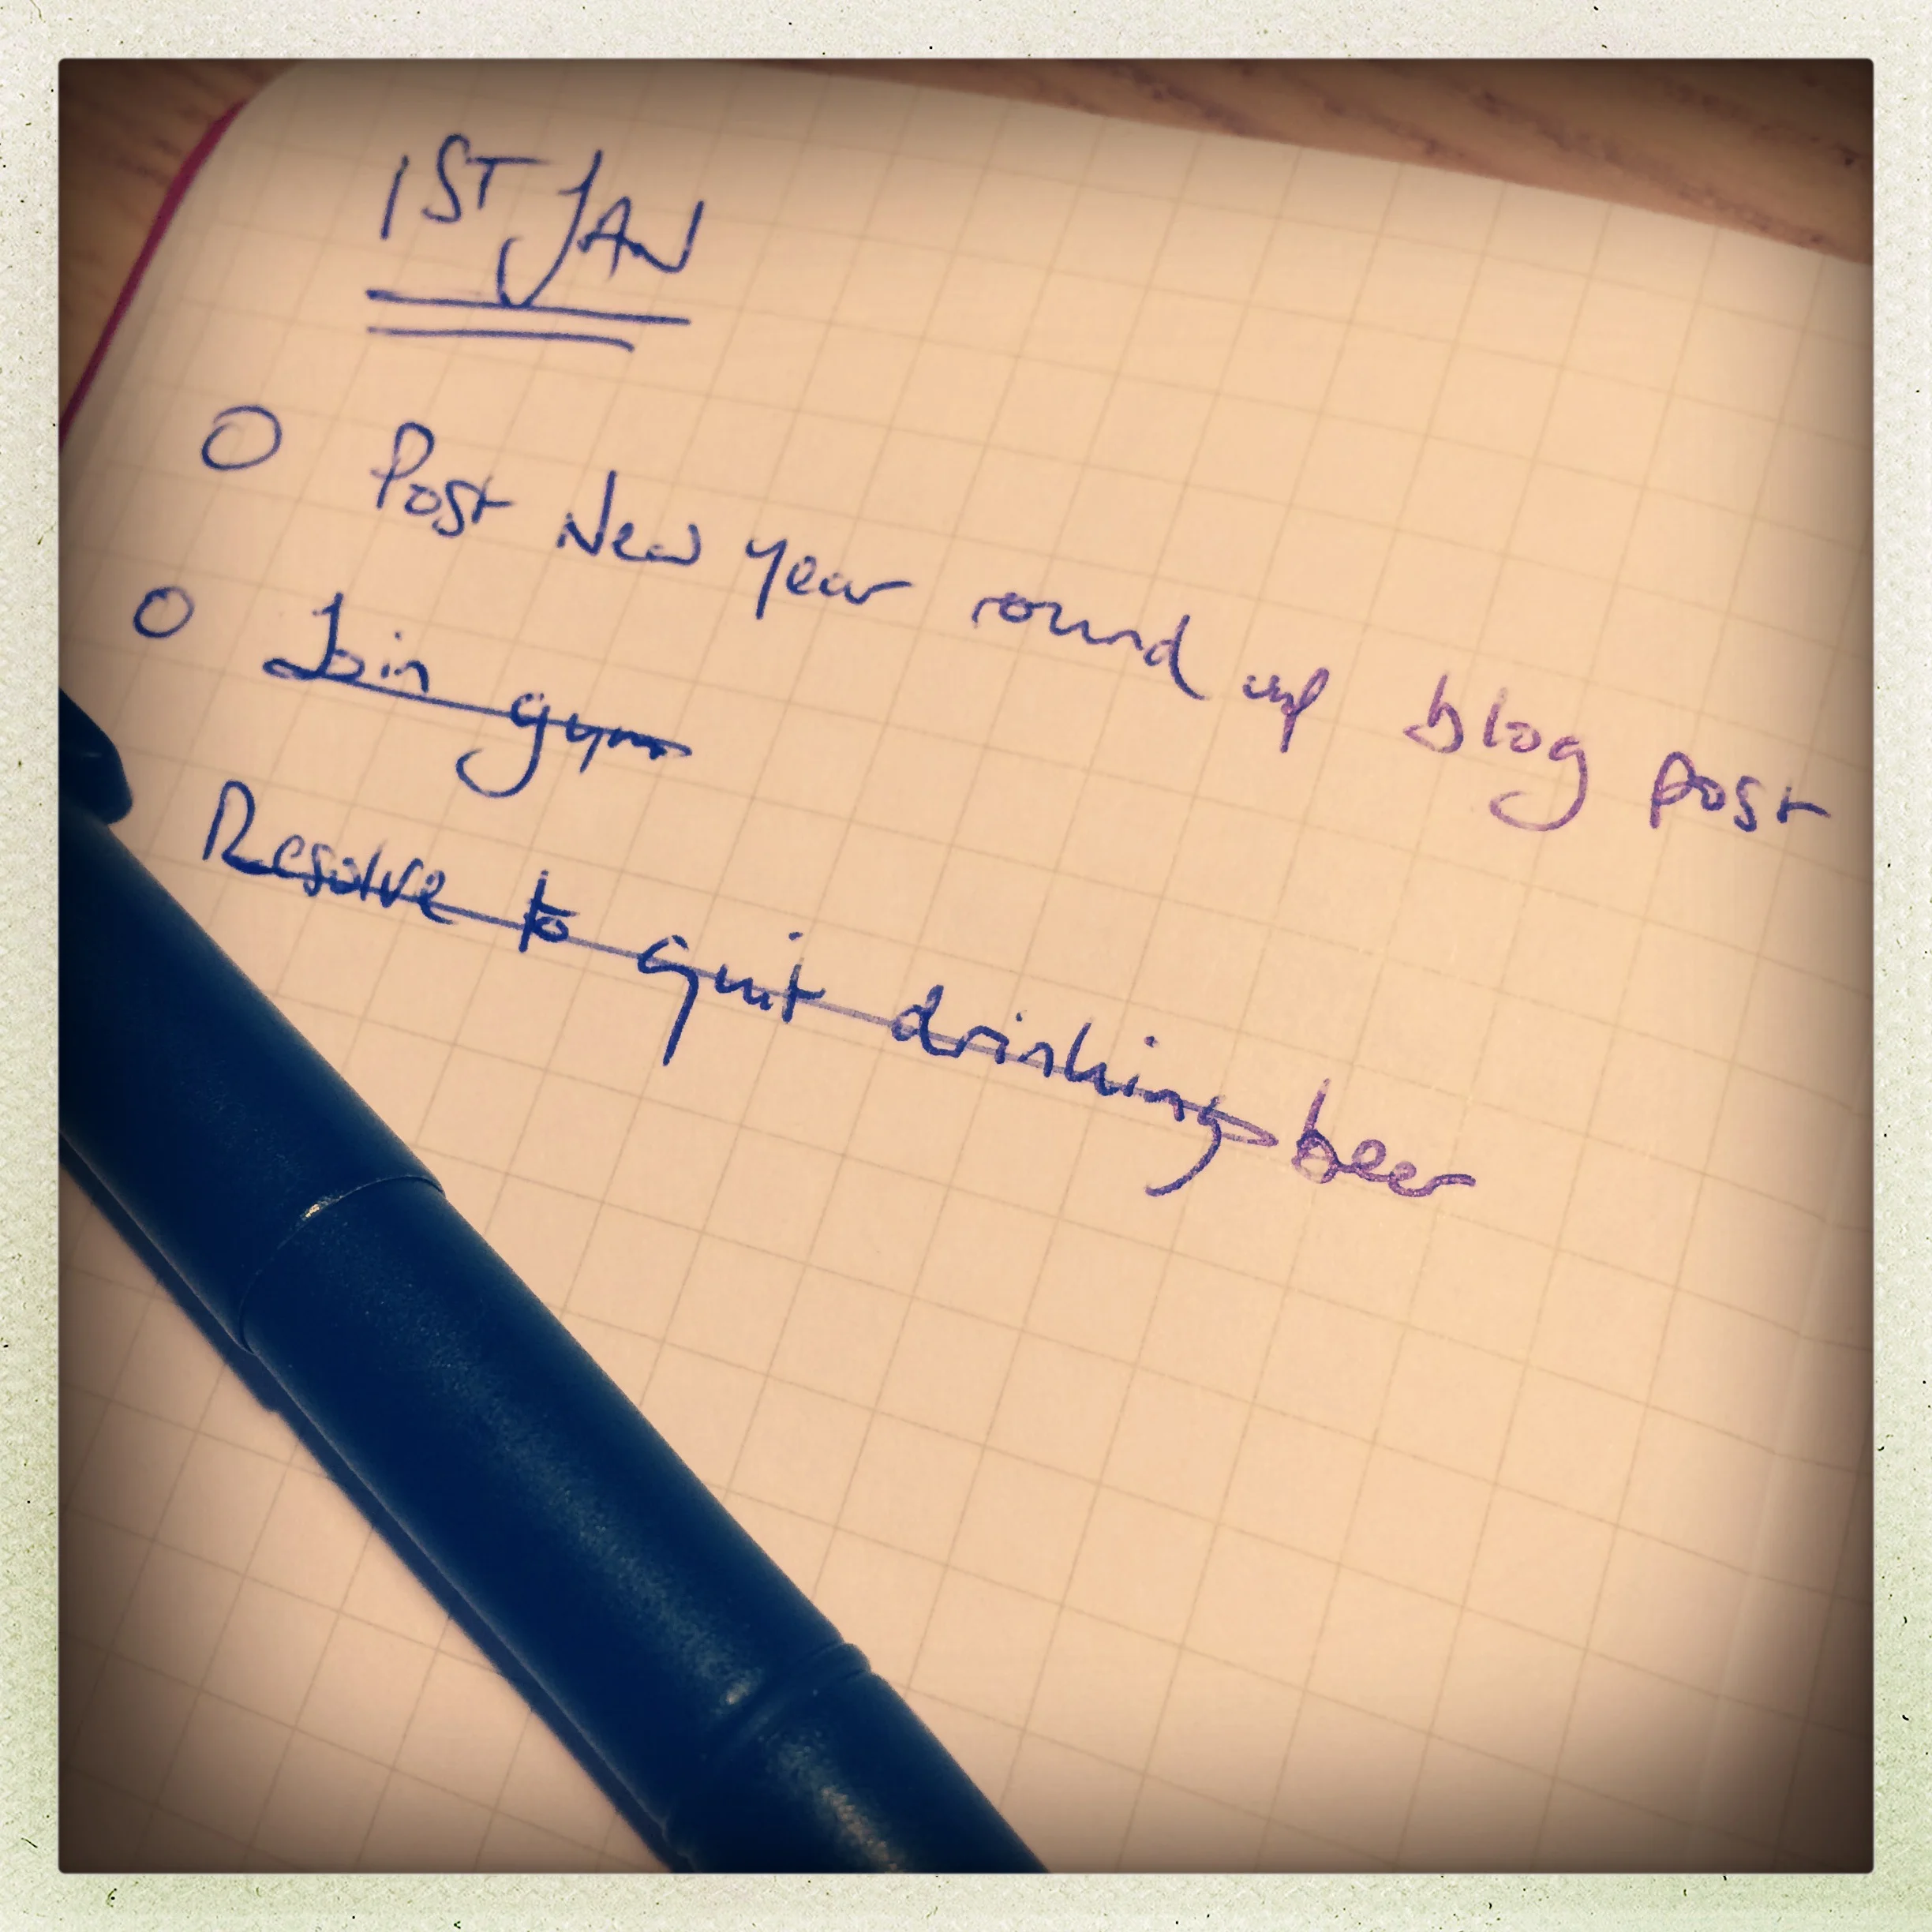 1ST JAN
O Post New Year round up blog post
O Join gym
Resolve to quit drinking beer